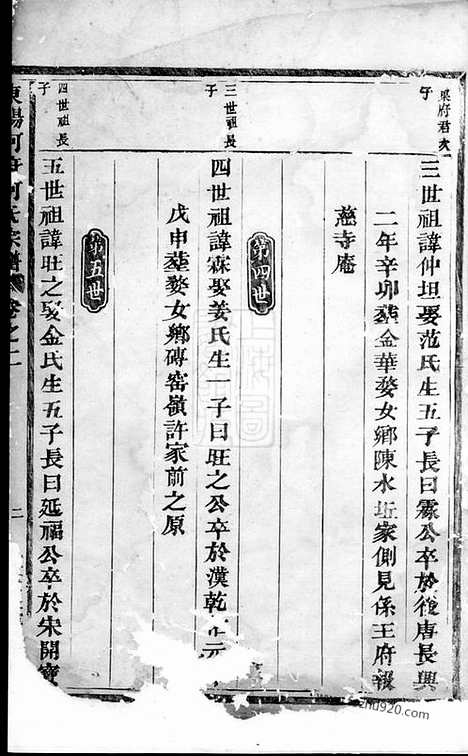 梁府君次
子
三世祖諱仲坦娶范氏生五子長曰霖公卒於後唐長興
二年辛卯塟金華婺女鄉陳水坵家側見係王府報
慈寺庵
第四世
三世祖長
子
四世祖諱霖娶姜氏生一子曰旺之公卒於漢乾 元
戊申塟婺女鄉磚窑嶺許家前之原
第五世
四世祖長
子
五世祖諱旺之娶金氏生五子長曰延福公卒於宋開寶
東陽何府何氏宗譜 卷之二
二
zhu920.com